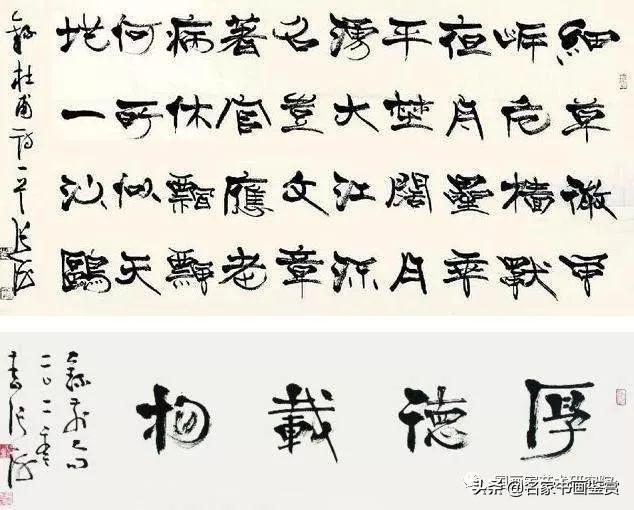 細草微風
岸危檣獨
夜舟星垂
平埜闊月
湧大江流
名豈文章
著官應老
病休飄飄
何所似天
地一沙鷗
錄杜甫詩一首張海
厚德載物
書張海
头条@名家书画鉴赏